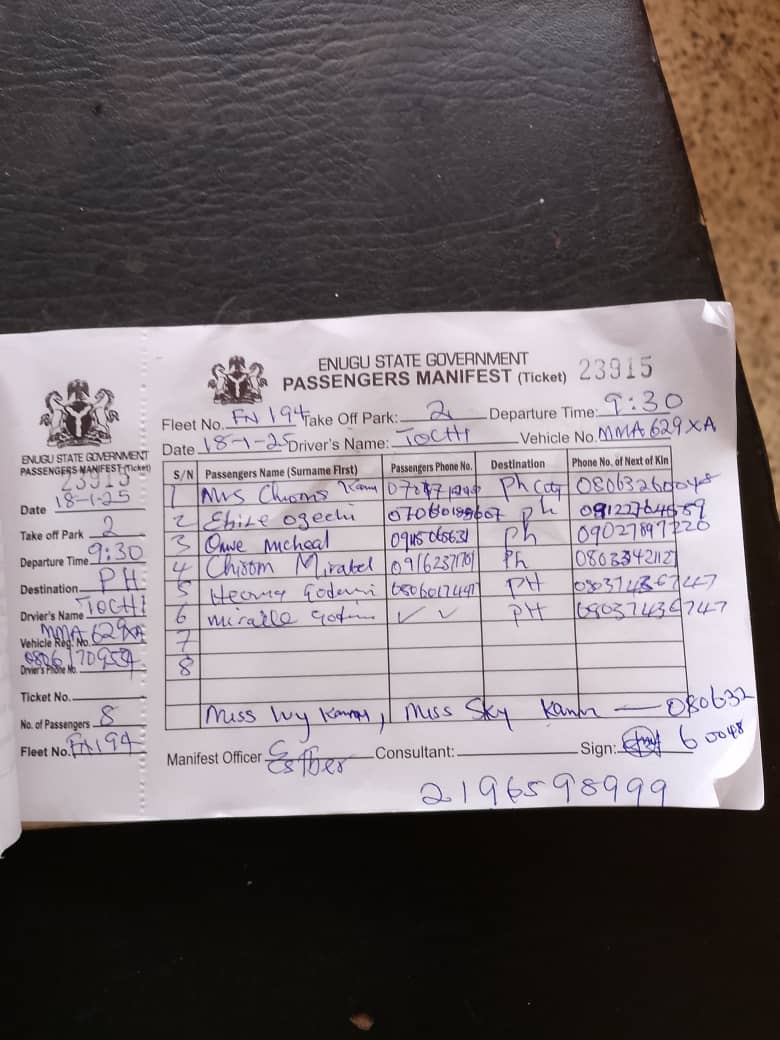 ENUGU STATE GOVERNMENT
PASSENGERS MANIFEST (Ticket)
23915
Date 18-1-25
Take off Park 2
Departure Time 9:30
Destination PH
Drvier's Name TOCHI
Vehicle Reg. No. MMA 629XA
Drvier's Phone No.
Ticket No.
No. of Passengers 8
Fleet No. FN 194
ENUGU STATE GOVERNMENT
PASSENGERS MANIFEST (Ticket) 23915
Fleet No. FN 194 Take Off Park: 2 Departure Time: 9:30
Date 18-1-25 Driver's Name: TOCHI Vehicle No. MMA 629XA
S/N Passengers Name (Surname First) Passengers Phone No. Destination Phone No. of Next of Kin
1 Mrs Ph City 08063260048
2 Ogechi Ph
3 Micheal Ph 09027897220
4 Chisom Mirabel Ph
5 PH 08037436747
6 Miracle ✓ ✓ PH 08037436747
7
8
Miss Ivy , Miss Sky — 080632
60048
Manifest Officer Esther Consultant: Sign:
2196598999